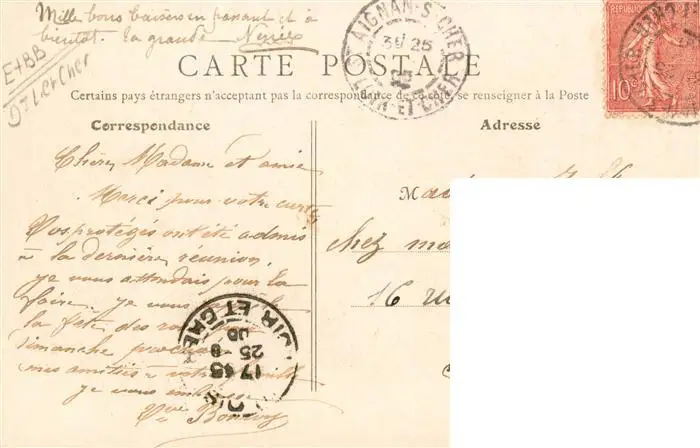 Mille bons baisers en passant et à
bientot. La grande
E+BB
D7 L et Cher
ST AIGNAN-S-CHER
25
LOIR-ET-CHER
REPUBLIQUE
10
CARTE POSTALE
Certains pays étrangers n'acceptant pas la correspondance de ce côté, se renseigner à la Poste
Correspondance
Adresse
Chère Madame et amie
Merci pour votre carte
Vos protégés ont été admis
à la dernière réunion.
je vous attendais pour la
foire. je vous
la fête des
dimanche
mes amitiés à votre
je vous
Vve
M
chez
16
LOIR ET CHER
17
25
8